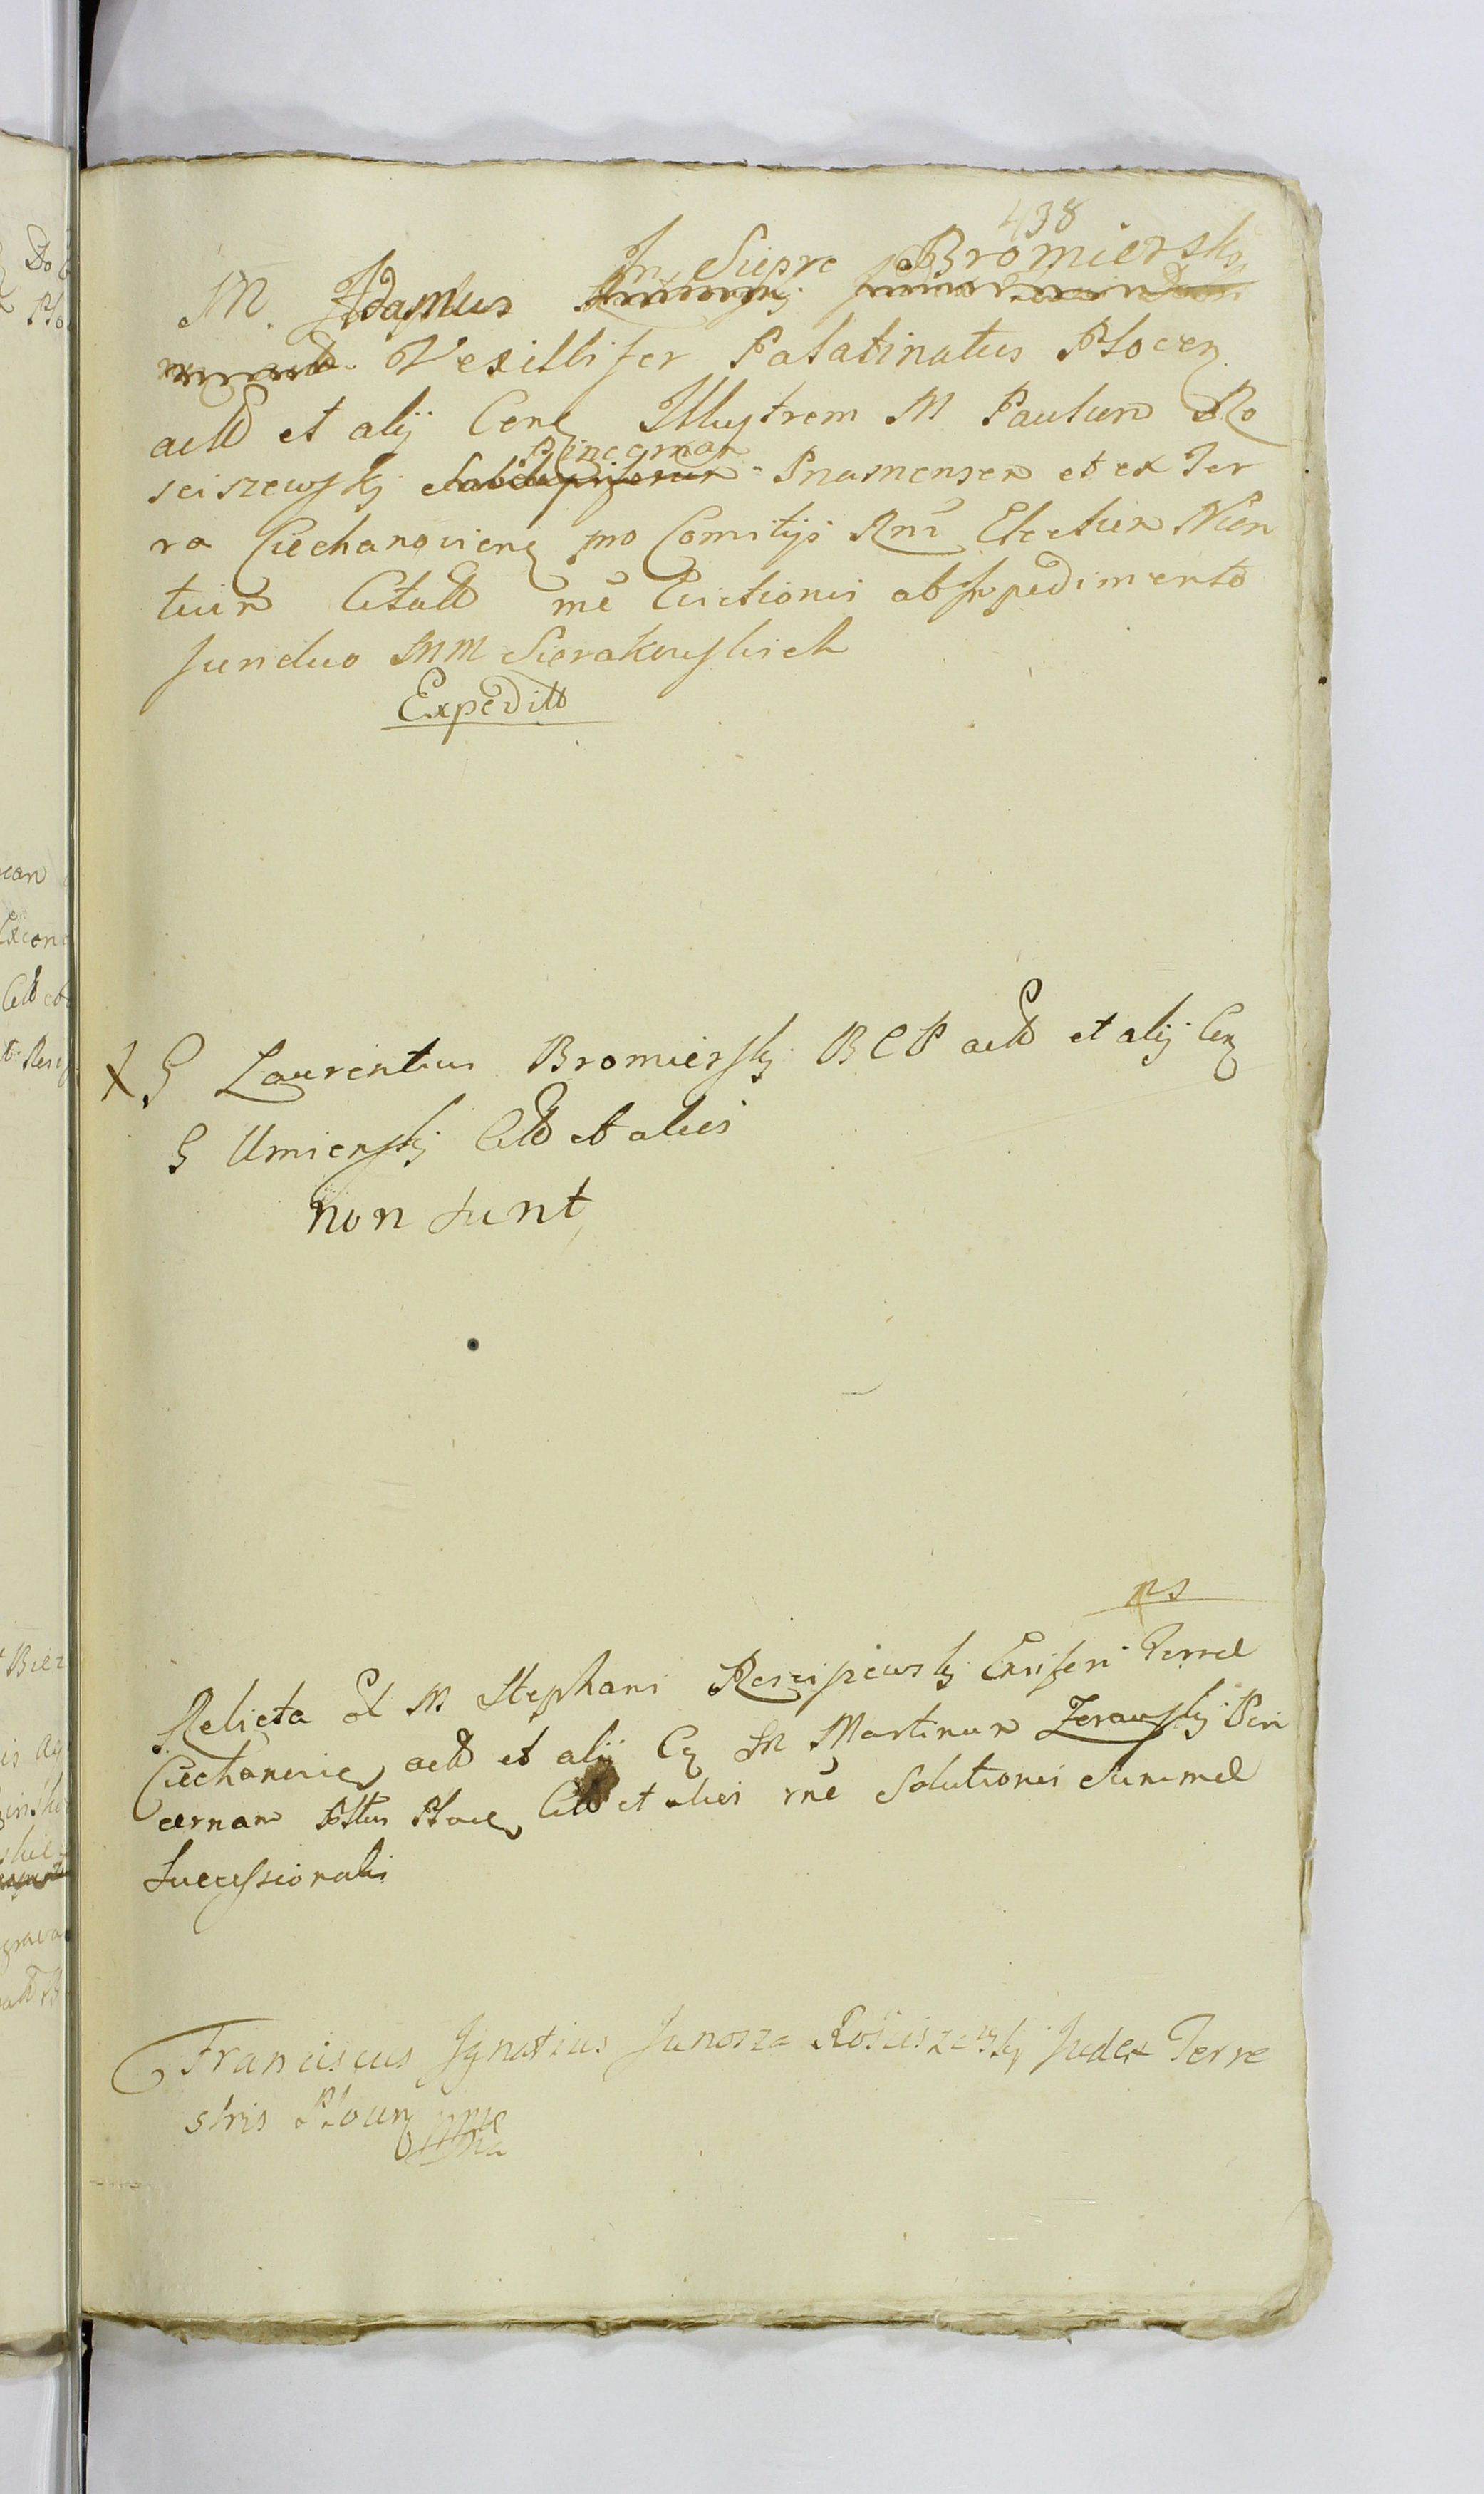 438
In Siepre Bromiersky
M. Adamus
Vexillifer Palatinatus Plocen
actt et alij Cenz Illustrem M Paulum Ro
Pincernam
sciszewskj Snamensem et ex Ter
ra Ciechanoviene pro Comitijs Rnĩ Electum Nun
tium Citatt rnẽ Evictionis ab Impedimento
funduo MM Sierakowskich
Expeditt
X G Laurentius Bromierskj B C P actt et alij Cenz
G Umienskj Citt et aliis
non sunt
ns
Relicta ol M Stephani Rosciszewskj Ensiferi Terrae
Ciechanovien actt et alij Cz M Martinum Zerawskj Pin
cernam Pttus Ploce Citt et alies rnẽ Solutionis Summae
Successionalis
Franciscus Ignatius Junosza Rościszewskj Judex Terre
stris Plocen mp